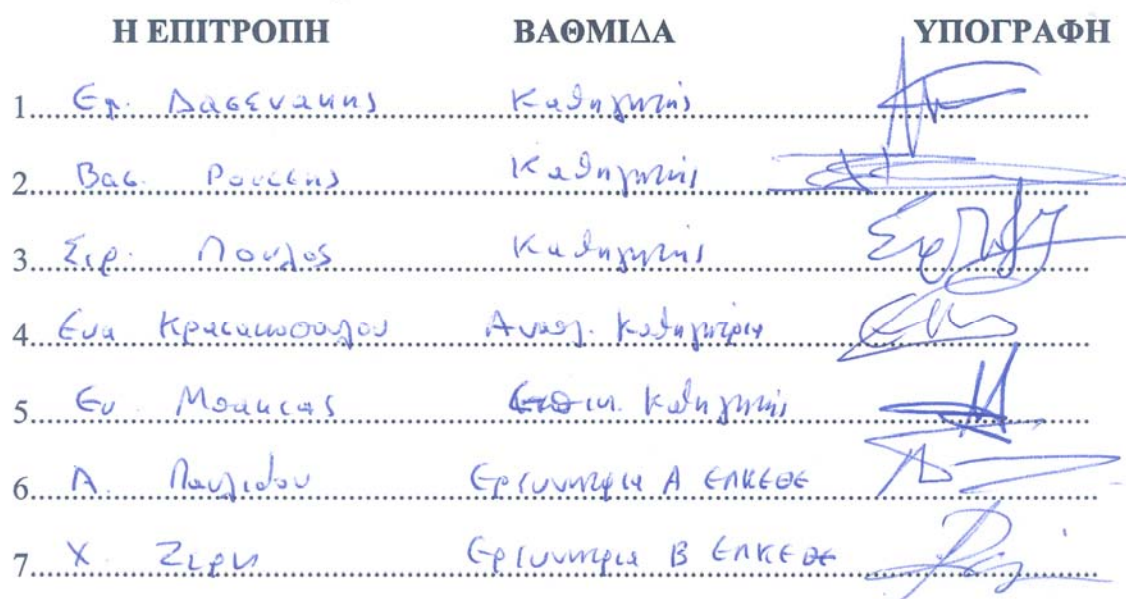 Η ΕΠΙΤΡΟΠΗ ΒΑΘΜΙΔΑ ΥΠΟΓΡΑΦΗ
1. Εμ. Δασενακης Καθηγητής
2. Βασ. Ρουσσης Καθηγητής
3. Σερ. Πουλος Καθηγητής
4. Ευα Κρασακοπουλου Αναπλ. Καθηγήτρια
5. Ευ. Μπακεας Επικ. Καθηγητής
6. Α. Παυλιδου Ερευνητρια Α ΕΛΚΕΘΕ
7. Χ. Ζερη Ερευνητρια Β ΕΛΚΕΘΕ